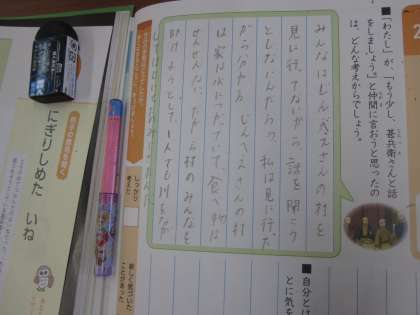 ■「わたし」が、「もう少し、甚兵衛さんと話
をしましょう。」と仲間に言おうと思ったの
は、どんな考えからでしょう。
みんなはじんべえさんの村を
見に行ってないから、話を聞こう
としないんだろう。私は見に行った
から分かる。じんべえさんの村
は家は水につかっていて食べ物は
ぜんぜんない。だから村のみんなを
助けようとして、一人でも川をなが
■自分と
とに気を
しっかり
考えた
新しく気づいた
ことがあった
にぎりしめた いね